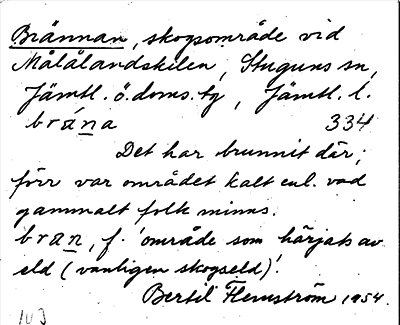 Brännan, skogsområde vid
Målålandskilen, Stuguns sn,
Jämtl. ö. doms. tg, Jämtl. l.
brána 334
Det har brunnit där;
förr var området kalt enl. vad
gammalt folk minns.
bran, f. 'område som härjats av
eld (vanligen skogseld)'.
Bertil Flemström 1954.